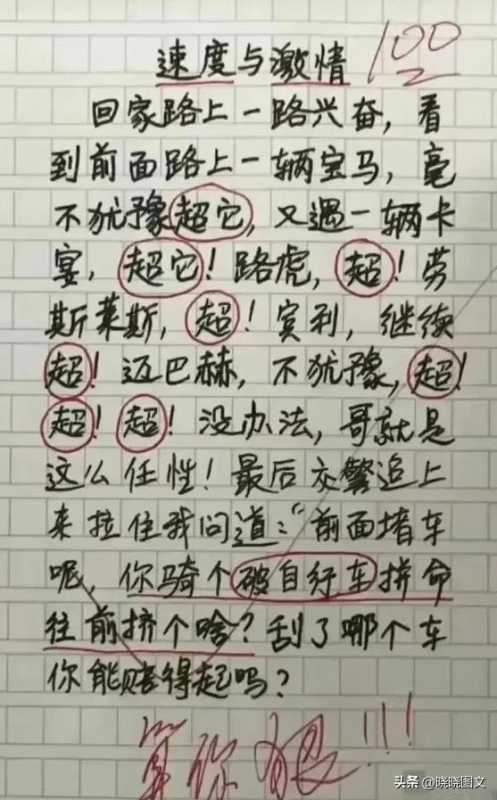 速度与激情
100
回家路上一路兴奋，看
到前面路上一辆宝马，毫
不犹豫超它，又遇一辆卡
宴，超它！路虎，超！劳
斯莱斯，超！宾利，继续
超！迈巴赫，不犹豫，超！
超！超！没办法，哥就是
这么任性！最后交警追上
来拉住我问道：“前面堵车
呢，你骑个破自行车拼命
往前挤个啥？刮了哪个车
你能赔得起吗？
算你狠!!!
头条 @晓晓图文